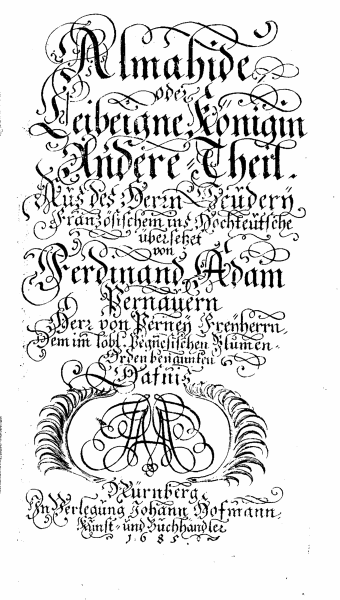 Almahide
oder
Leibeigne Königin
Andere-Theil.
Aus des Herrn Scudery
Französischem ins Hochteutsche
übersetzet
von
Ferdinand Adam
Pernauern
Herr von Perney Freyherrn,
Dem im löbl. Pegnesischen Blumen-
Orden benannten
Dafnis
Nürnberg,
In Verlegung Johann Hofmann,
Kunst- und Buchhändler
1685.